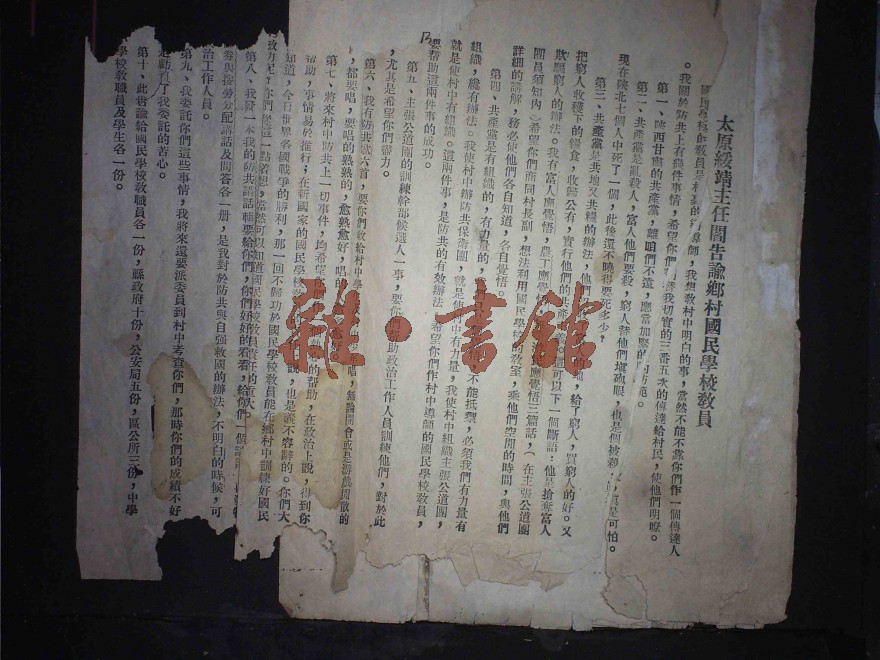 太原綏靖主任閻告諭鄉村國民學校教員
國民學校的教員是村裏的指導師，我想教村中明白的事，當然不能不靠你們作一個傳達人
。我關於防共上有幾件事情，希望你們替我切實的三番五次的傳達給村民，使他們明瞭。
第一、陝西甘肅的共產黨，離咱們不遠，應當加緊的防範。
第二、共產黨是亂殺人，富人他們要殺，窮人替他們堵砲眼，也是個被殺，這是可怕。
現在陝北七個人中死了一個，此後還不曉得要死多少，
第三、共產黨是共地又共糧的辦法，他們，給了窮人，買窮人的好。又
把窮人收穫下的糧食，收歸公有，實行他們的共產，可以下一個斷語：他是搶奪富人
欺騙窮人的辦法。我有富人應覺悟，農工應覺悟，應覺悟三篇話，（在主張公道團
團員須知內）希望你們商同村長副，想法利用國民學校教室，乘他們空閒的時間，與他們
詳細的講解，務必使他們各自知道，各自覺悟。
第四、共產黨是有組織的，有力量的，不能抵禦，必須我們有力量有
組織，纔有辦法。我使村中辦防共保衛團，就是使村中有力量，我使村中組織主張公道團，
就是使村中有組織。這兩件事，是防共的有效辦法，希望你們作村中導師的國民學校教員，
要幫助這兩件事的成功。
第五、主張公道團的訓練幹部候選人一事，要你們幫助政治工作人員訓練他們，對於此
，尤其是希望你們審力。
第六、我有防共歌六首，要你們教給村中學唱，無論開會或是游戲閒散的
，都要唱，要唱的熟熟的，愈熟愈好，唱的愈好。
第七、將來村中防共上一切事件，均希望你們的幫助，在政治上說，得到你
幫助，事情易於推行；在新國家的國民學校教說，也是義不容辭的。你們大
知道，今日世界各國戰爭的勝利，那一回不歸功於國民學校教員能在鄉村中訓練好國民
，你們從這一點着想，當然可以知道國民學校教員責任的重大
第八、我發一本我的防共講話輯要給你們，你們好好的看看，給你們一個
券與按勞分配講話及問答各一冊，是我對於防共與自強救國的辦法，不明白的時候，可
治工作人員。
第九、我委託你們這些事情，我將來還要派委員到村中考查你們，那時你們的成績不好
了我委託的苦心。
第十、此告諭給國民學校教職員各一份，縣政府十份，公安局五份，區公所三份，中學
學校教職員及學生各一份。
雜·書館